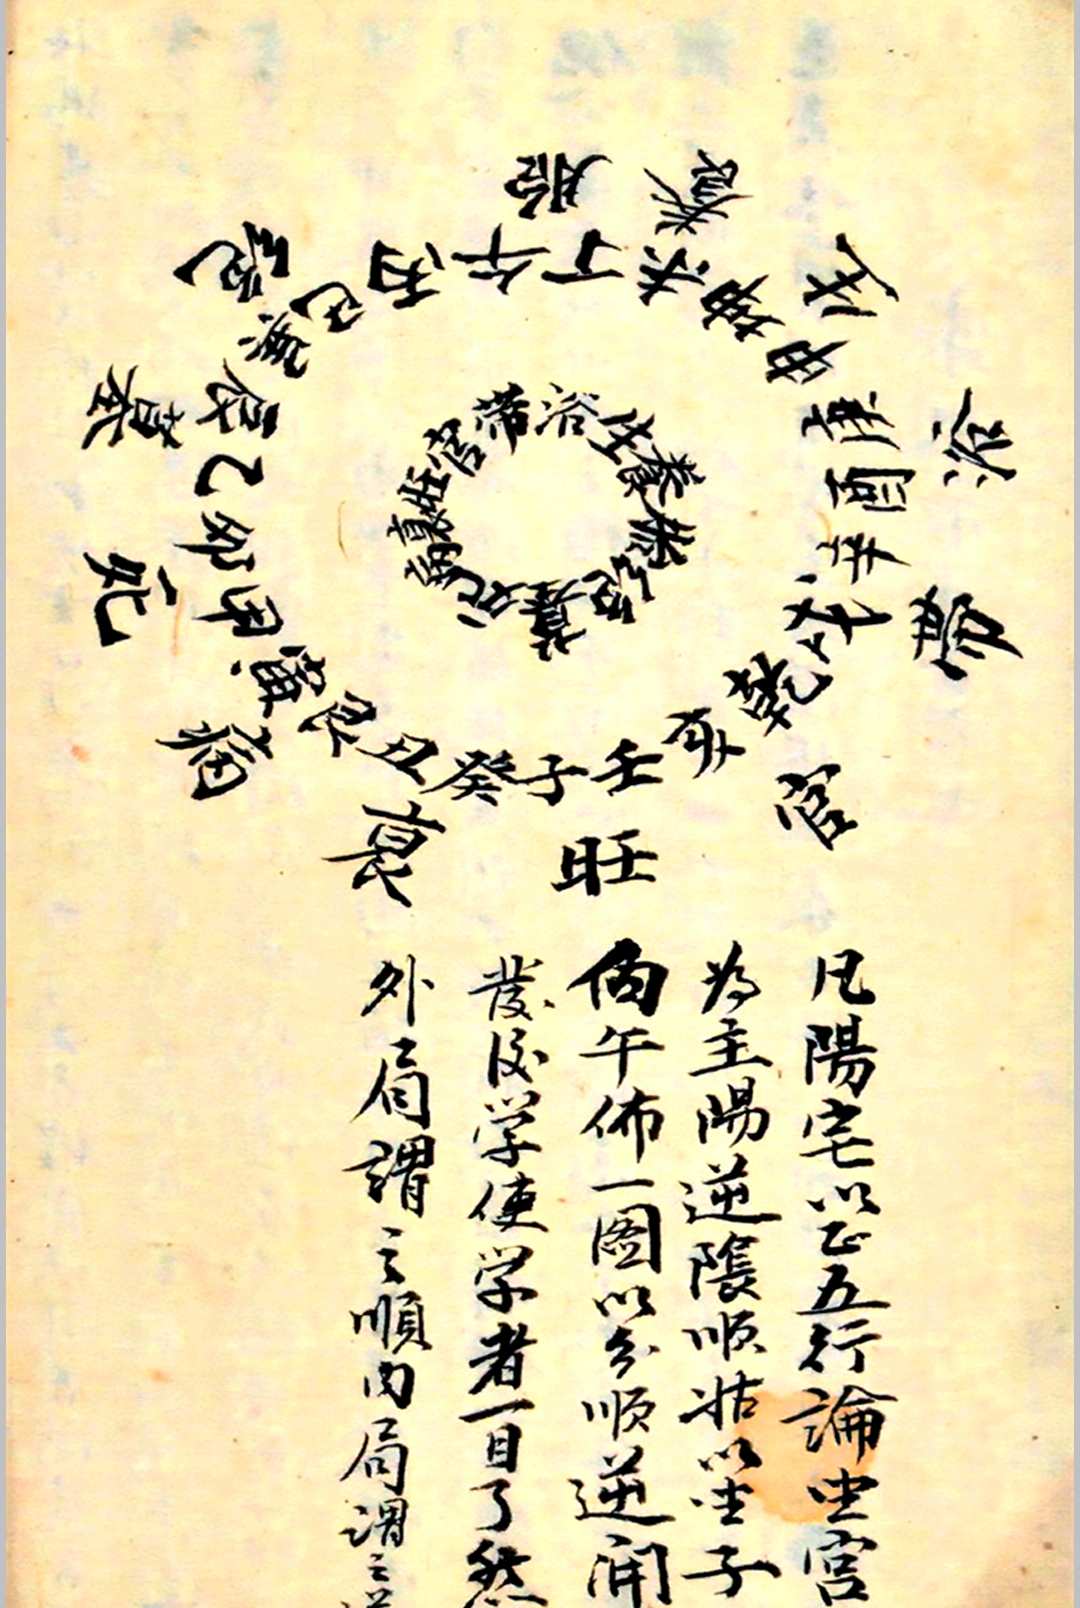 胎養生浴帶官旺衰病死墓絶
午丁未坤申庚酉辛戌乾亥壬子癸丑艮寅甲卯乙辰巽巳丙
帶浴生養胎絶墓死病衰旺官
凡陽宅以正五行論坐宮
為主陽逆陰順姑以坐子
向午佈一图以分順逆開
發後学使学者一目了然
外局謂之順内局謂之